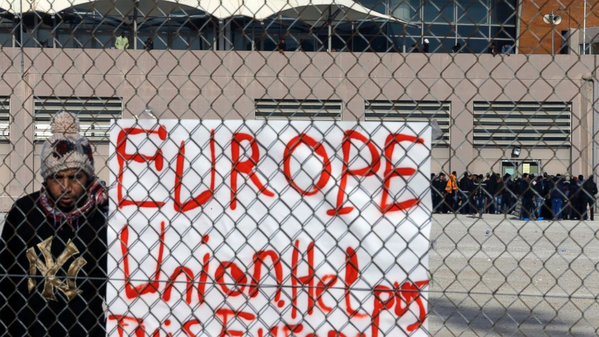 EUROPE
Union.HeLp us
NY